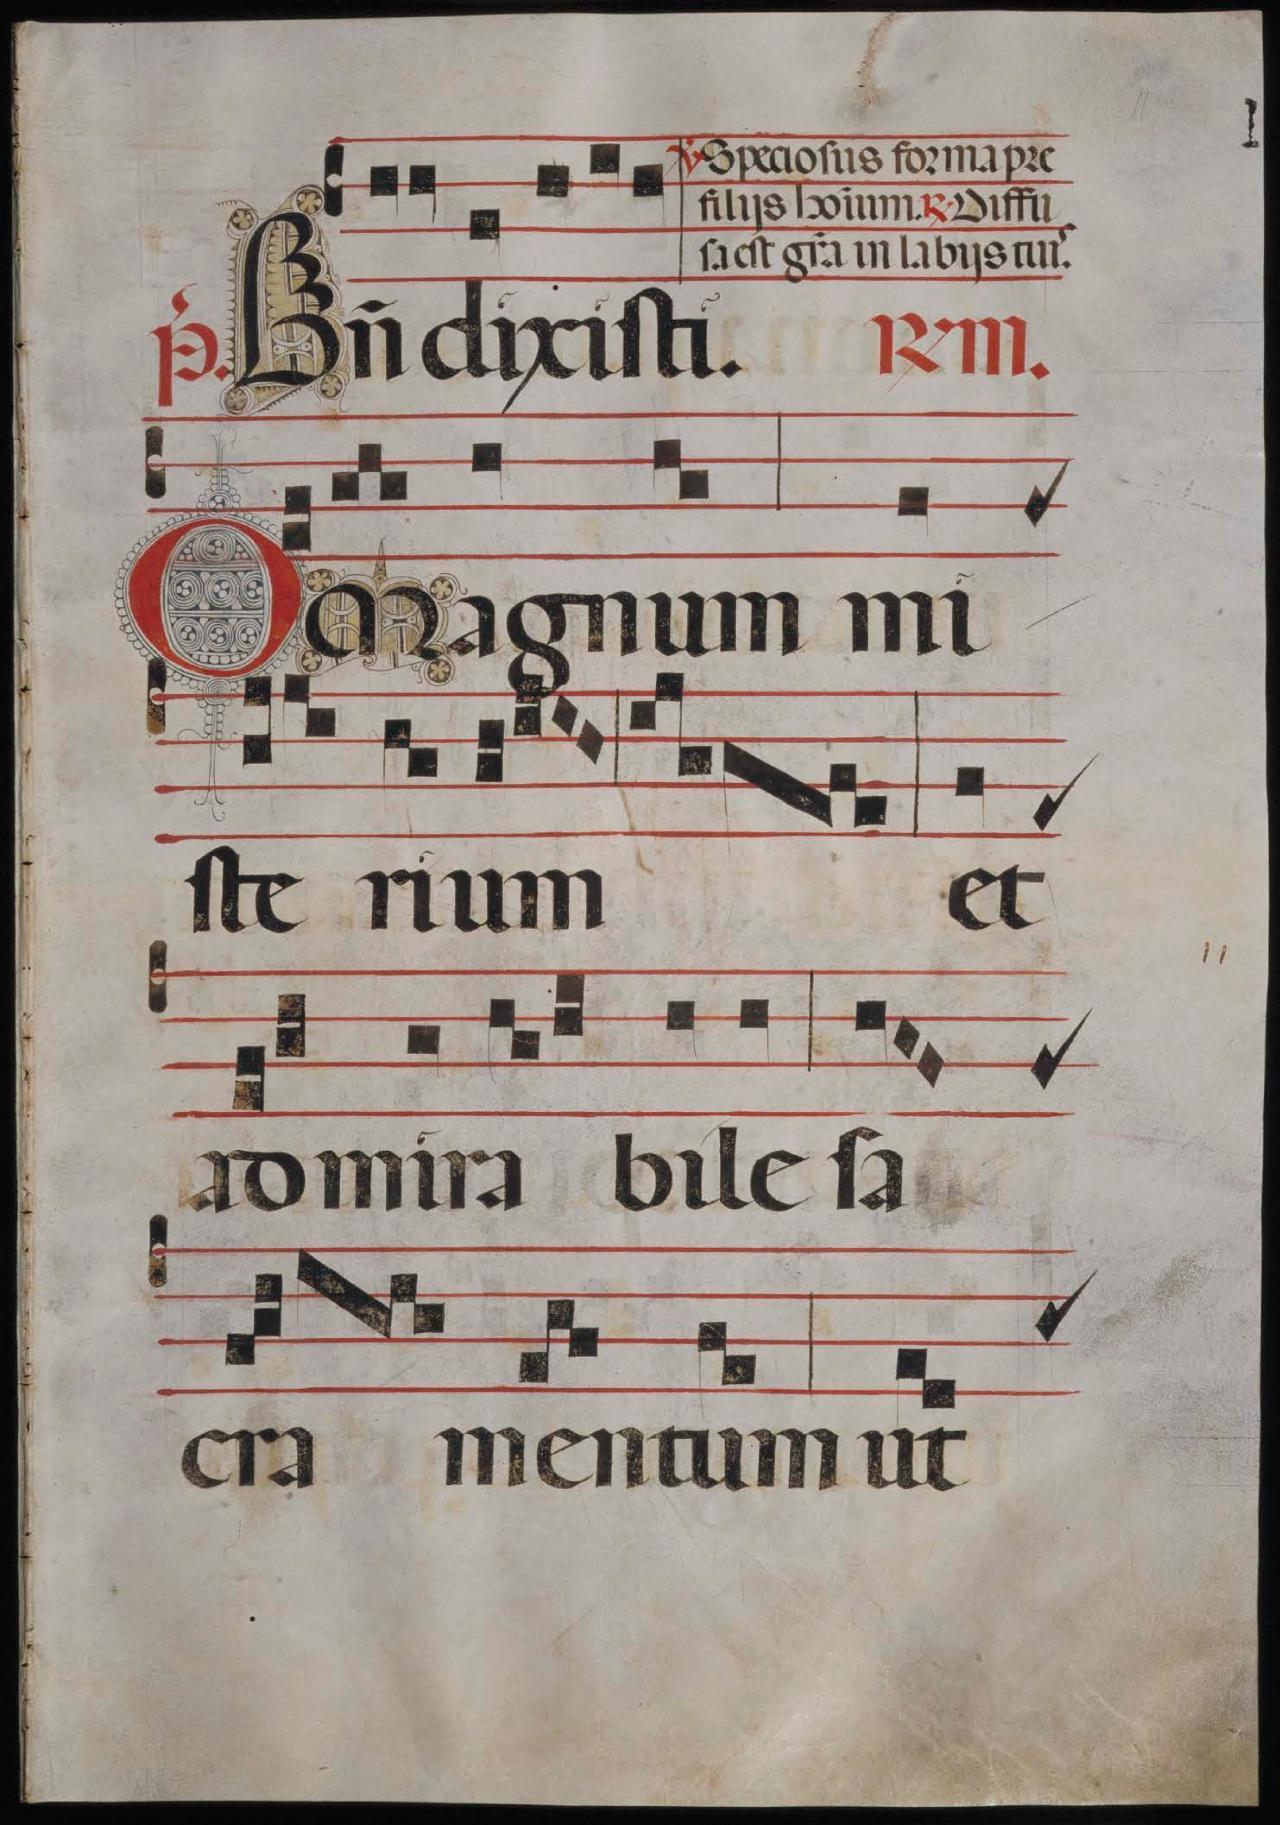 ℣ Speciosus forma pre
filijs hoīum. ℟ Diffu
sa est gr̄a in labijs tuis.
p̄s. Bn̄ dixisti. ℟ III.
O Magnum mi
ste rium et
admira bile sa
cra mentum ut
I